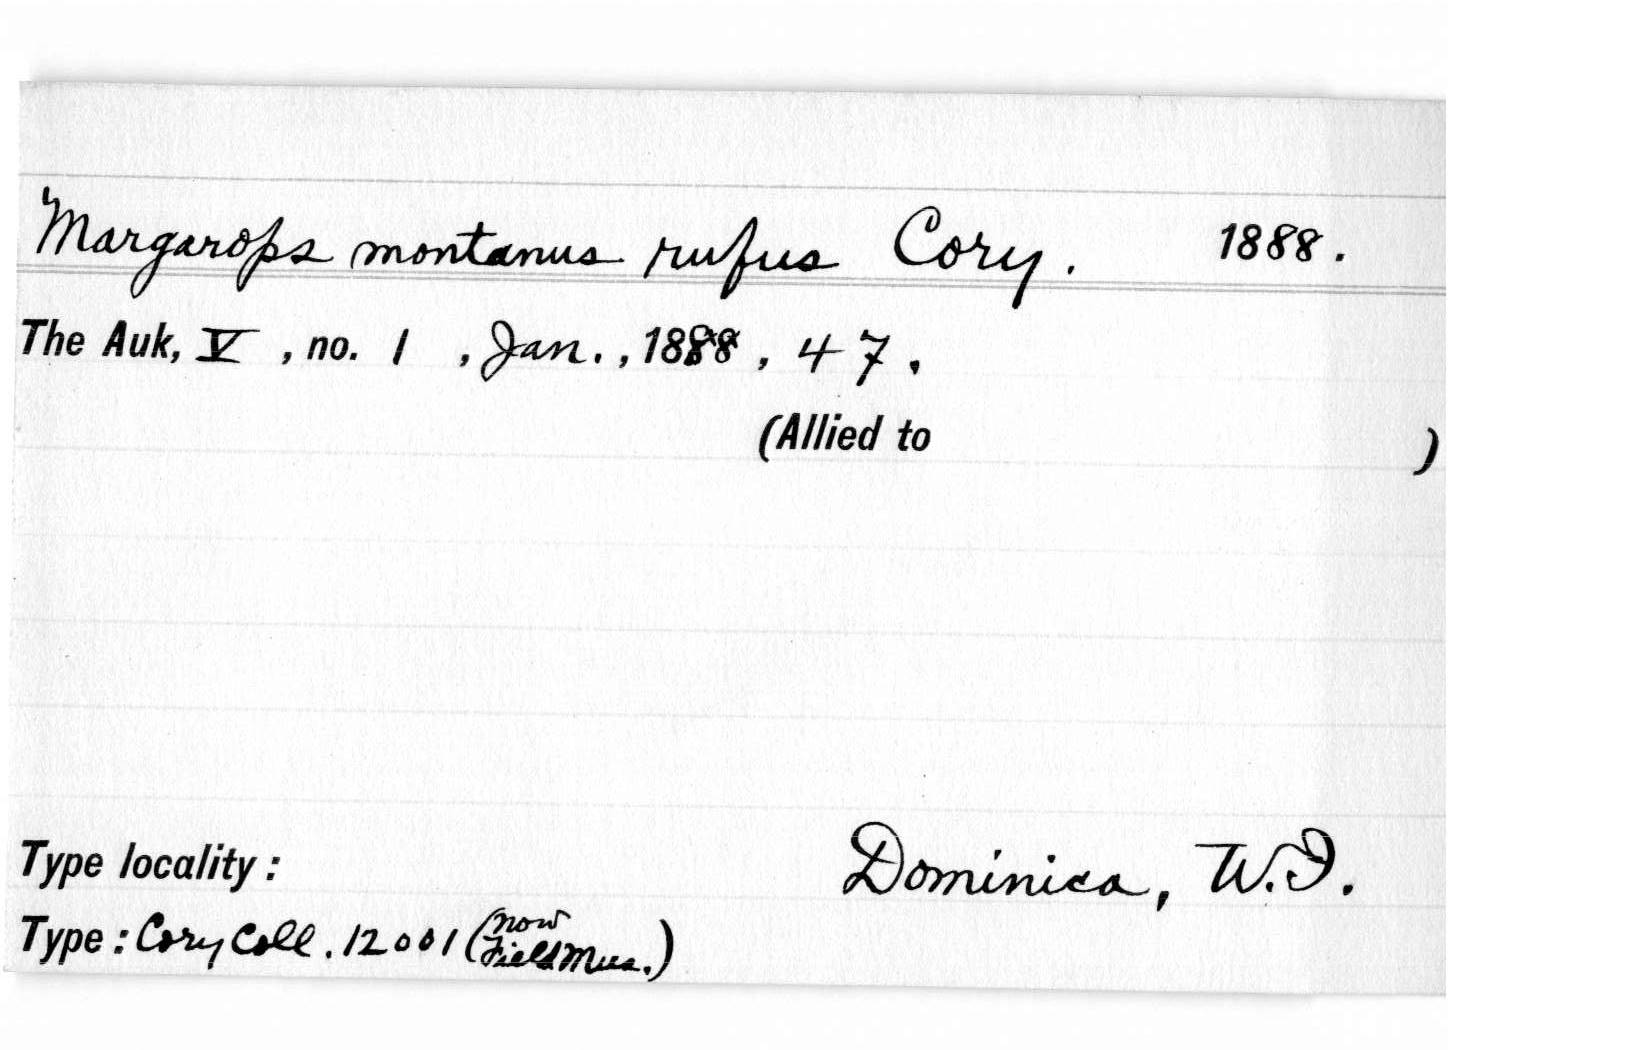 Margarops montanus rufus Cory. 1888.
The Auk, V, no. 1, Jan., 1888, 47.
(Allied to )
Type locality: Dominica, W.I.
Type: Cory Coll. 12001 (now Field Mus.)